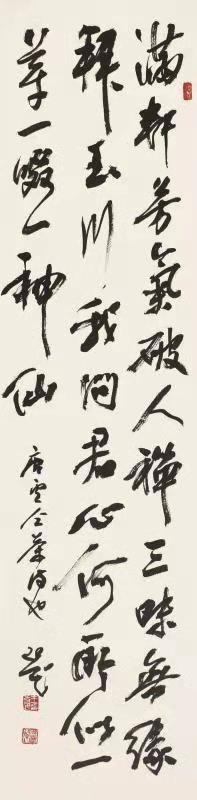 滿軒芳氣破人禪三昧無緣
拜玉川我問君心何所似一
芽一啜一神仙
唐雲茶詩也